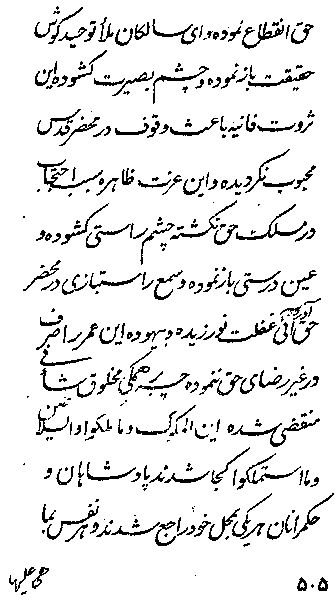 حق انقطاع نموده و ای سالکان ملأ توحید گوش
حقیقت باز نموده و چشم بصیرت گشوده این
ثروت فانیه باعث وقوف در محضر قدس
محبوب نگردیده و این عزت ظاهره سبب احتجاب
در مسلک حق نگشته چشم راستی گشوده و
عین درستی باز نموده و سمع راستبازی در محضر
حق آورده آنی غفلت نورزیده و بیهوده این عمر را صرف
در غیر رضای حق ننموده چه بر همگی مخلوق شأنی
منقضی شده این الملوک و ما ملکوا و السلاطین
و ما استملکوا کجا شدند پادشاهان و
حکمرانان هر یکی بمحل خود راجع شدند و هر نفس بما
۵۰۵